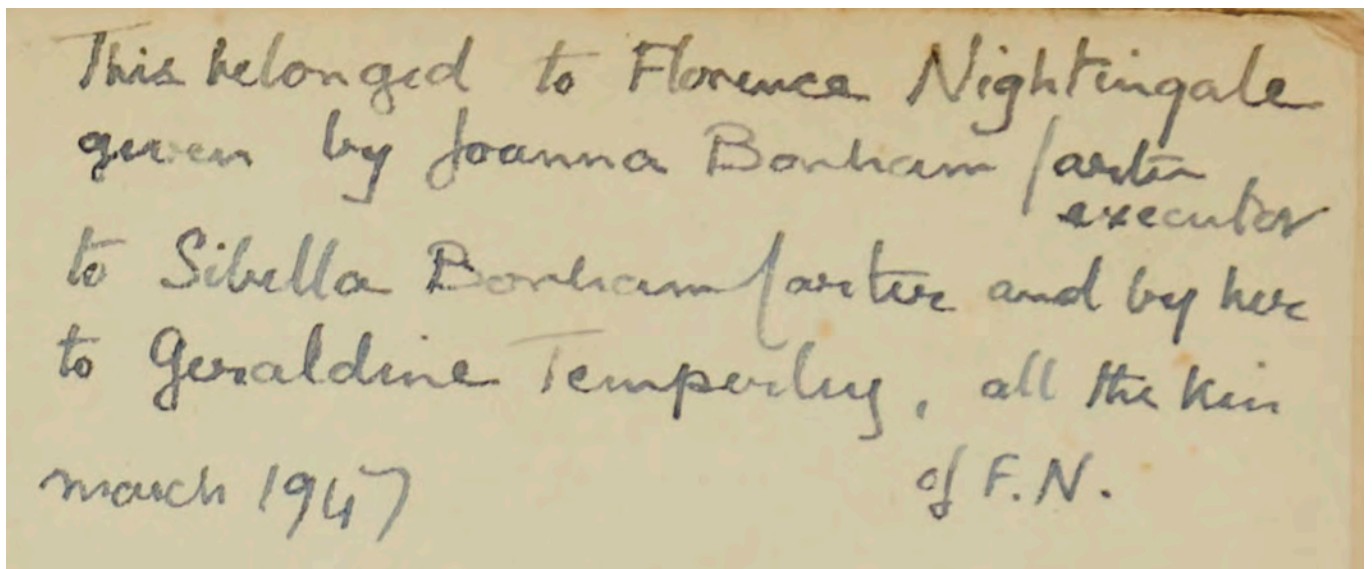 This belonged to Florence Nightingale
given by Joanna Bonham Carter
executor
to Sibella Bonham Carter and by her
to Geraldine Temperley, all the kin
march 1947 of F.N.